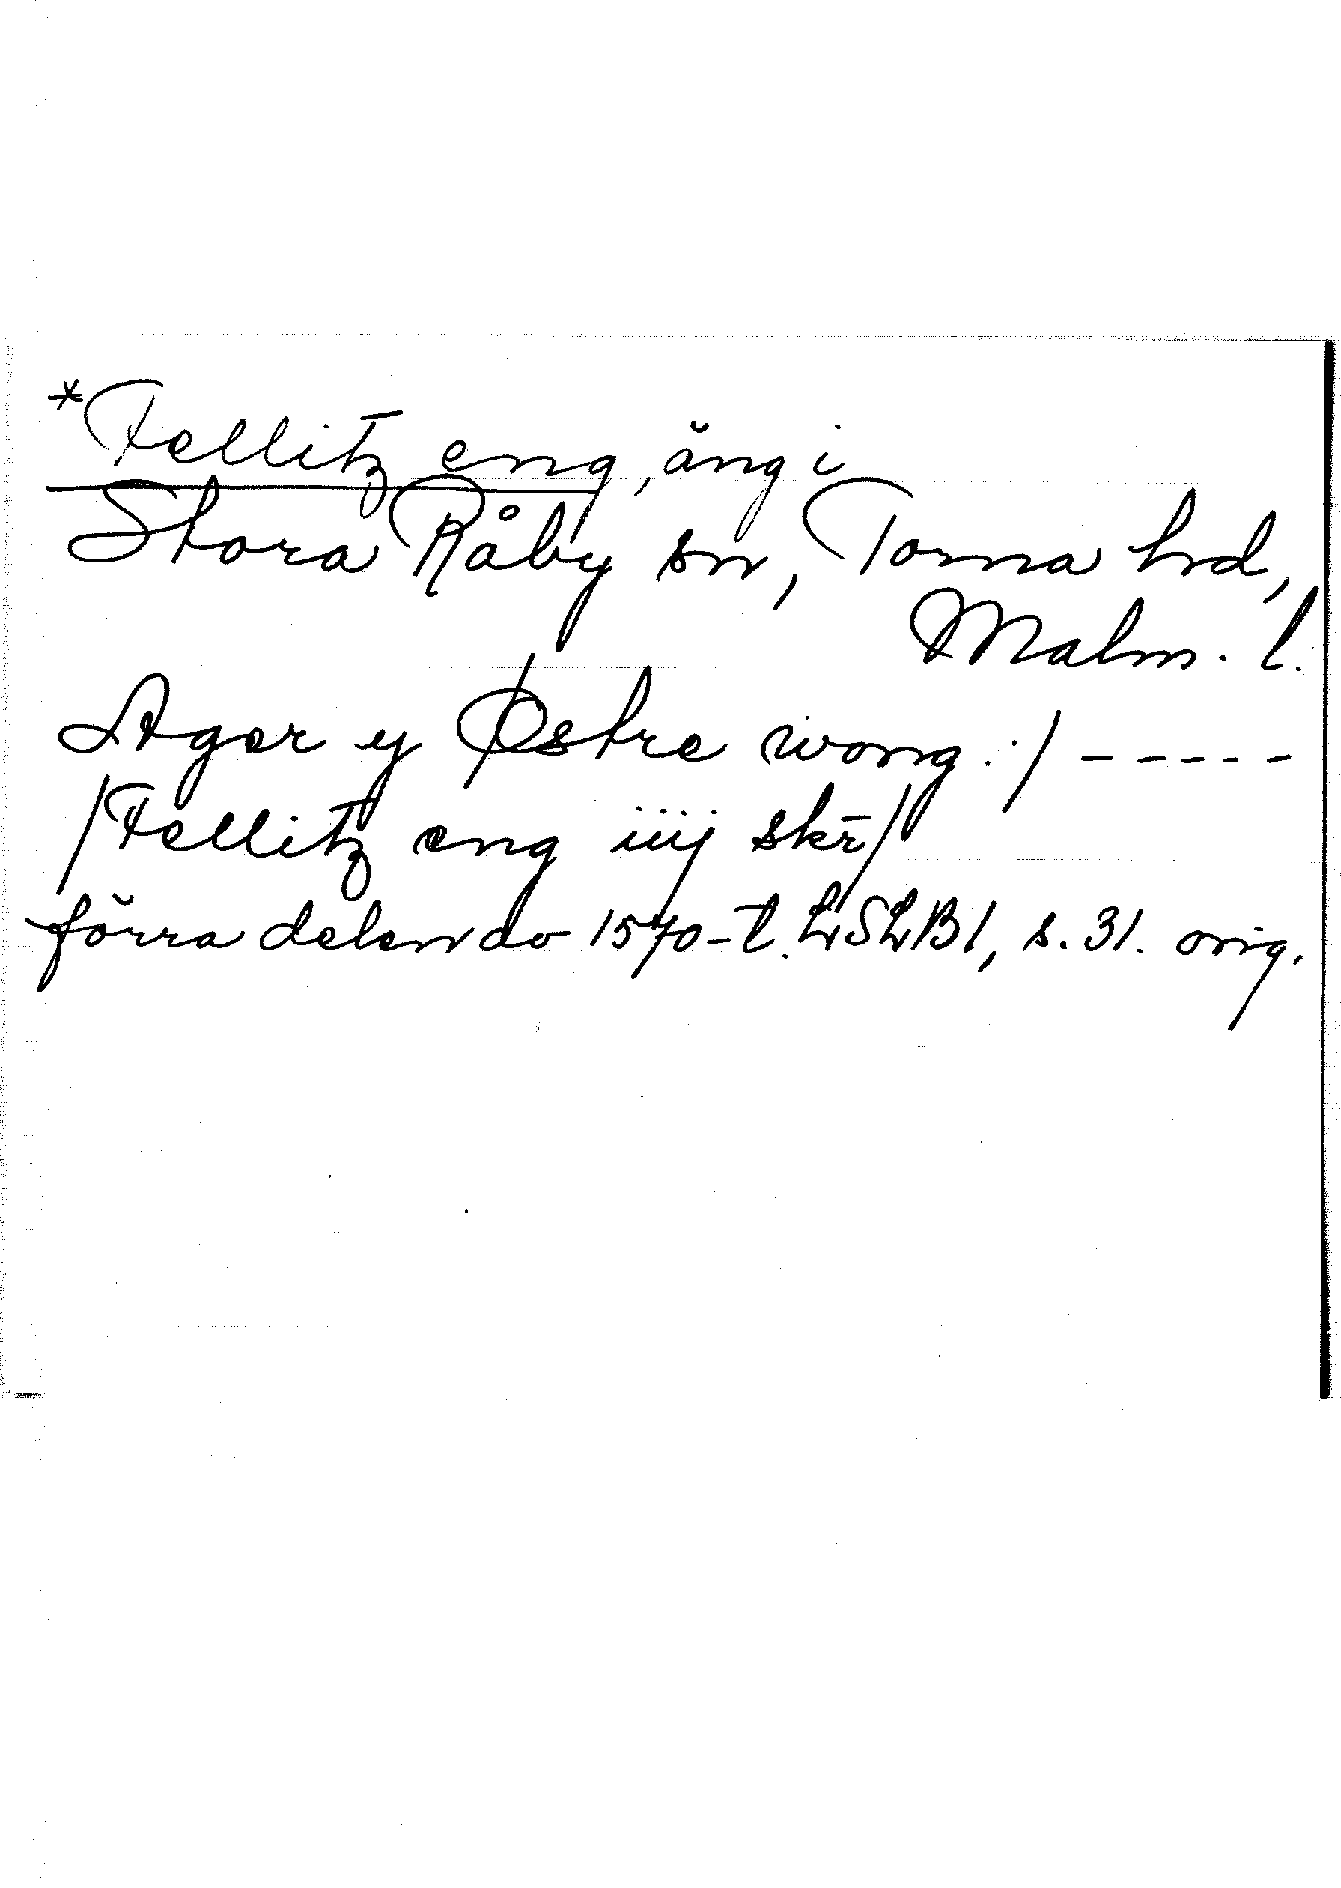 *Fellitz eng, äng i
Stora Råby sn, Torna hd,
Malm. l.
Ager y Østre wong :/ -----
/Fellitz eng iiij skr̄/
förra delen av 1570-t. LSLB1, s. 31. orig.